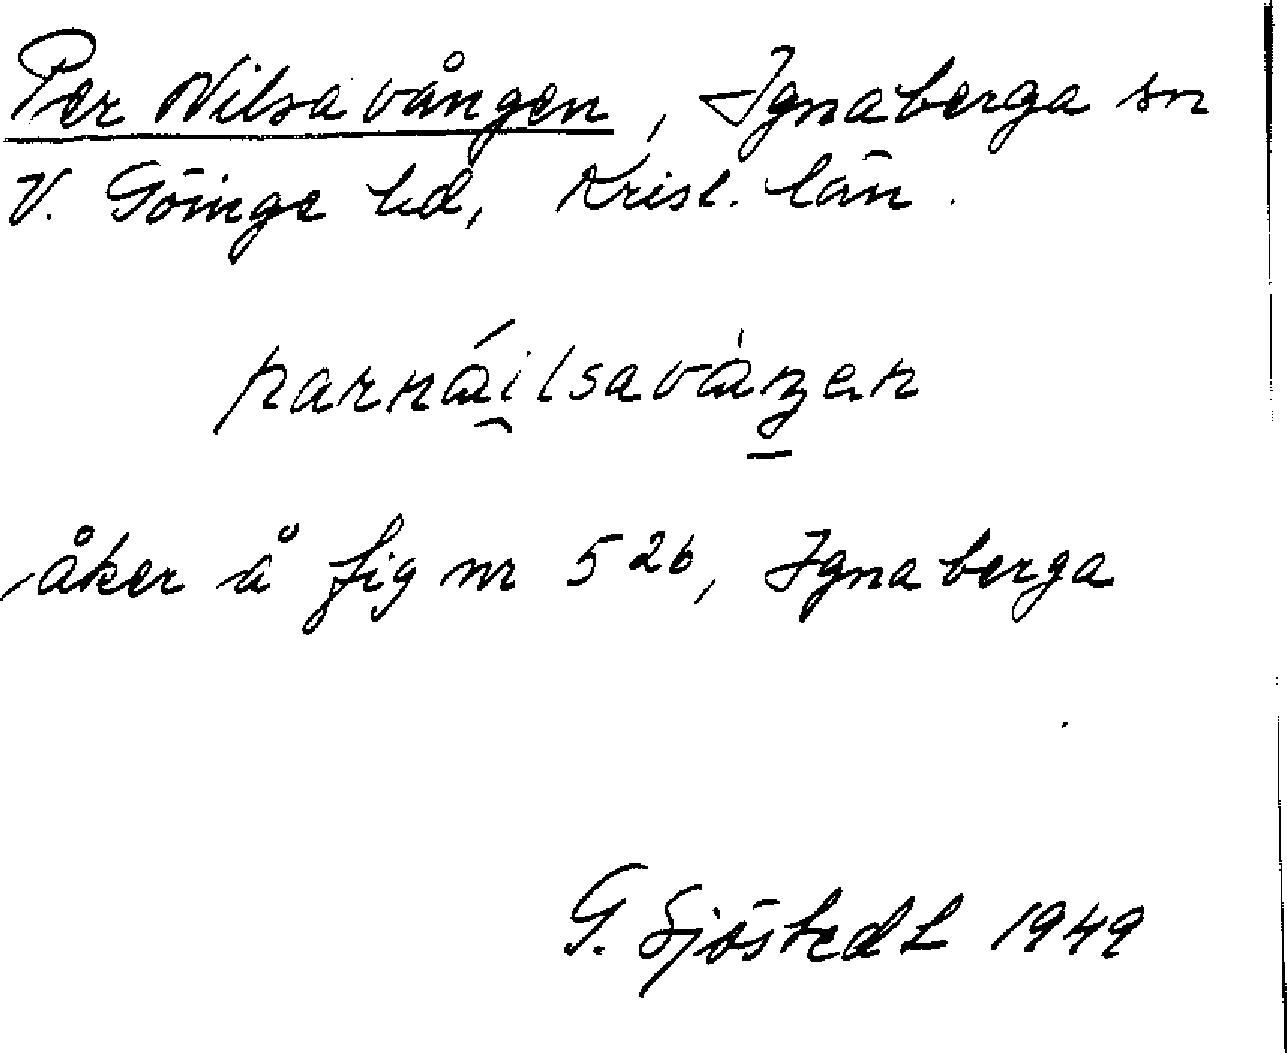 Per Nilsavången, Ignaberga sn
V. Göinge hd, Krist. län.
parnáilsavåŋen
åker å fig nr 526, Ignaberga
G. Sjöstedt 1949